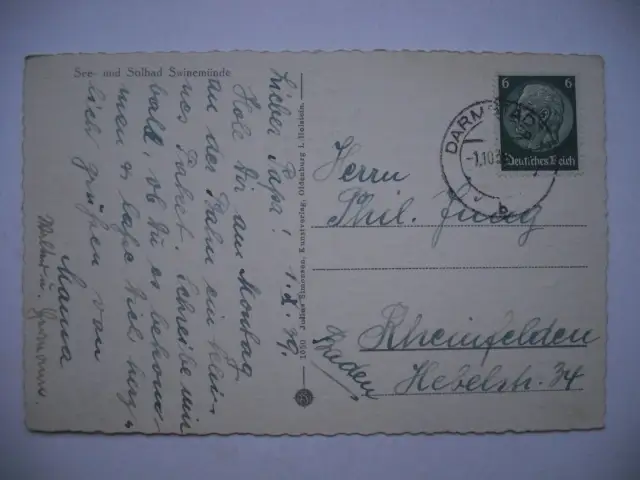 See- und Solbad Swinemünde
1.X.39.
Lieber Papa!
Hole Dir am Montag
an der Bahn ein klei-
nes Paket. Schreibe mir
bald, ob Du es bekom-
men u. lasse Dich herz-
lich grüßen von
Mama
u.
1050 Julius Simonsen, Kunstverlag, Oldenburg i. Holstein.
6 6
Deutsches Reich
DARMSTADT
-1.10.3
b
Herrn
Phil. Jung
Rheinfelden
(Baden)
Hebelstr. 34